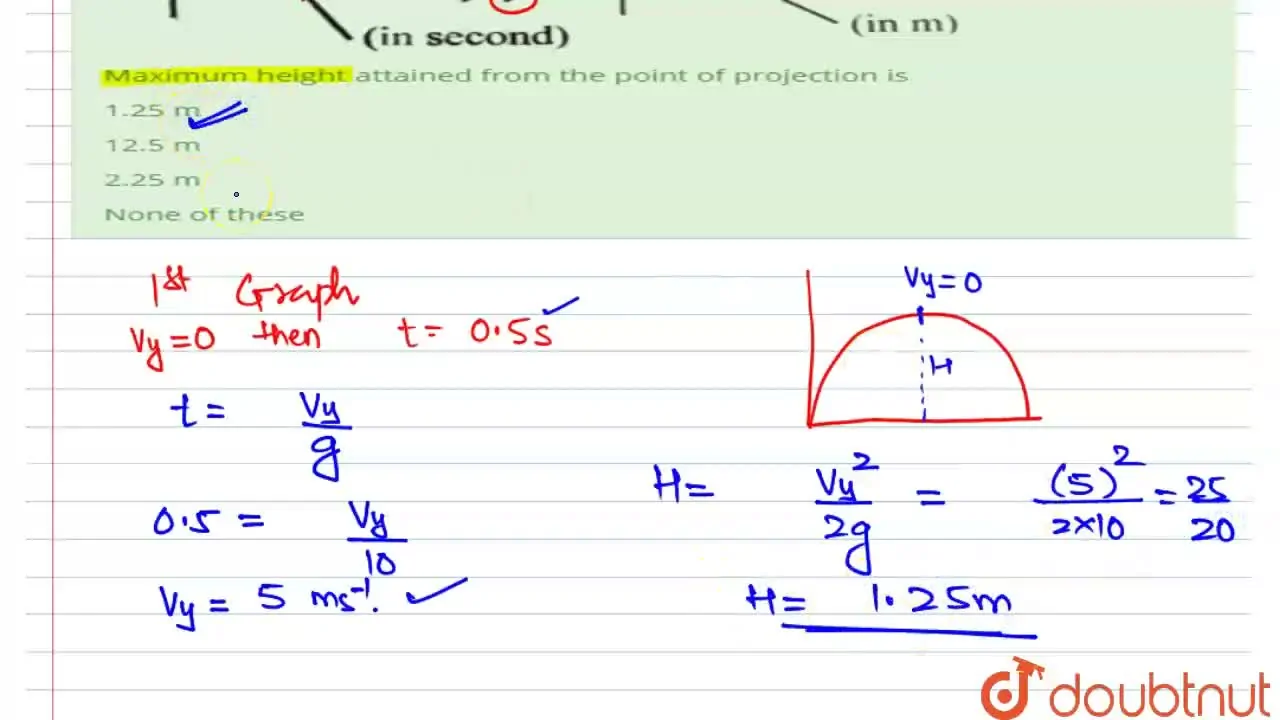 (in second)
(in m)
Maximum height attained from the point of projection is
1.25 m
12.5 m
2.25 m
None of these
1st Graph
Vy=0 then t= 0.5s
t= Vy/g
0.5 = Vy/10
Vy = 5 ms⁻¹.
Vy=0
H
H= Vy²/2g = (5)²/2×10 = 25/20
H= 1.25m
doubtnut